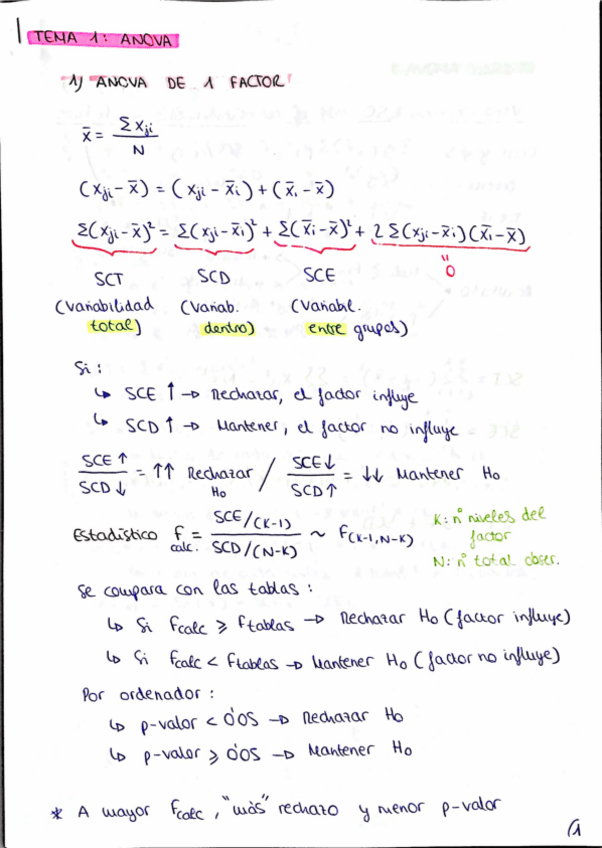 TEMA 1: ANOVA
1) ANOVA DE 1 FACTOR
x̄ = Σxji / N
(xji - x̄) = (xji - x̄i) + (x̄i - x̄)
Σ(xji - x̄)² = Σ(xji - x̄i)² + Σ(x̄i - x̄)² + 2Σ(xji - x̄i)(x̄i - x̄)
SCT SCD SCE " 0
(Variabilidad (Variab. (Variabil.
total) dentro) entre grupos)
Si:
↳ SCE ↑ → Rechazar, el factor influye
↳ SCD ↑ → Mantener, el factor no influye
SCE ↑ / SCD ↓ = ↑↑ Rechazar Ho / SCE ↓ / SCD ↑ = ↓↓ Mantener Ho
Estadístico fcalc. = SCE/(K-1) / SCD/(N-K) ~ F(K-1, N-K)
K: nº niveles del
factor
N: nº total obser.
Se compara con las tablas:
↳ Si fcalc ≥ ftablas → Rechazar Ho (factor influye)
↳ Si fcalc < ftablas → Mantener Ho (factor no influye)
Por ordenador:
↳ p-valor < 0'05 → Rechazar Ho
↳ p-valor ≥ 0'05 → Mantener Ho
* A mayor fcalc, "más" rechazo y menor p-valor